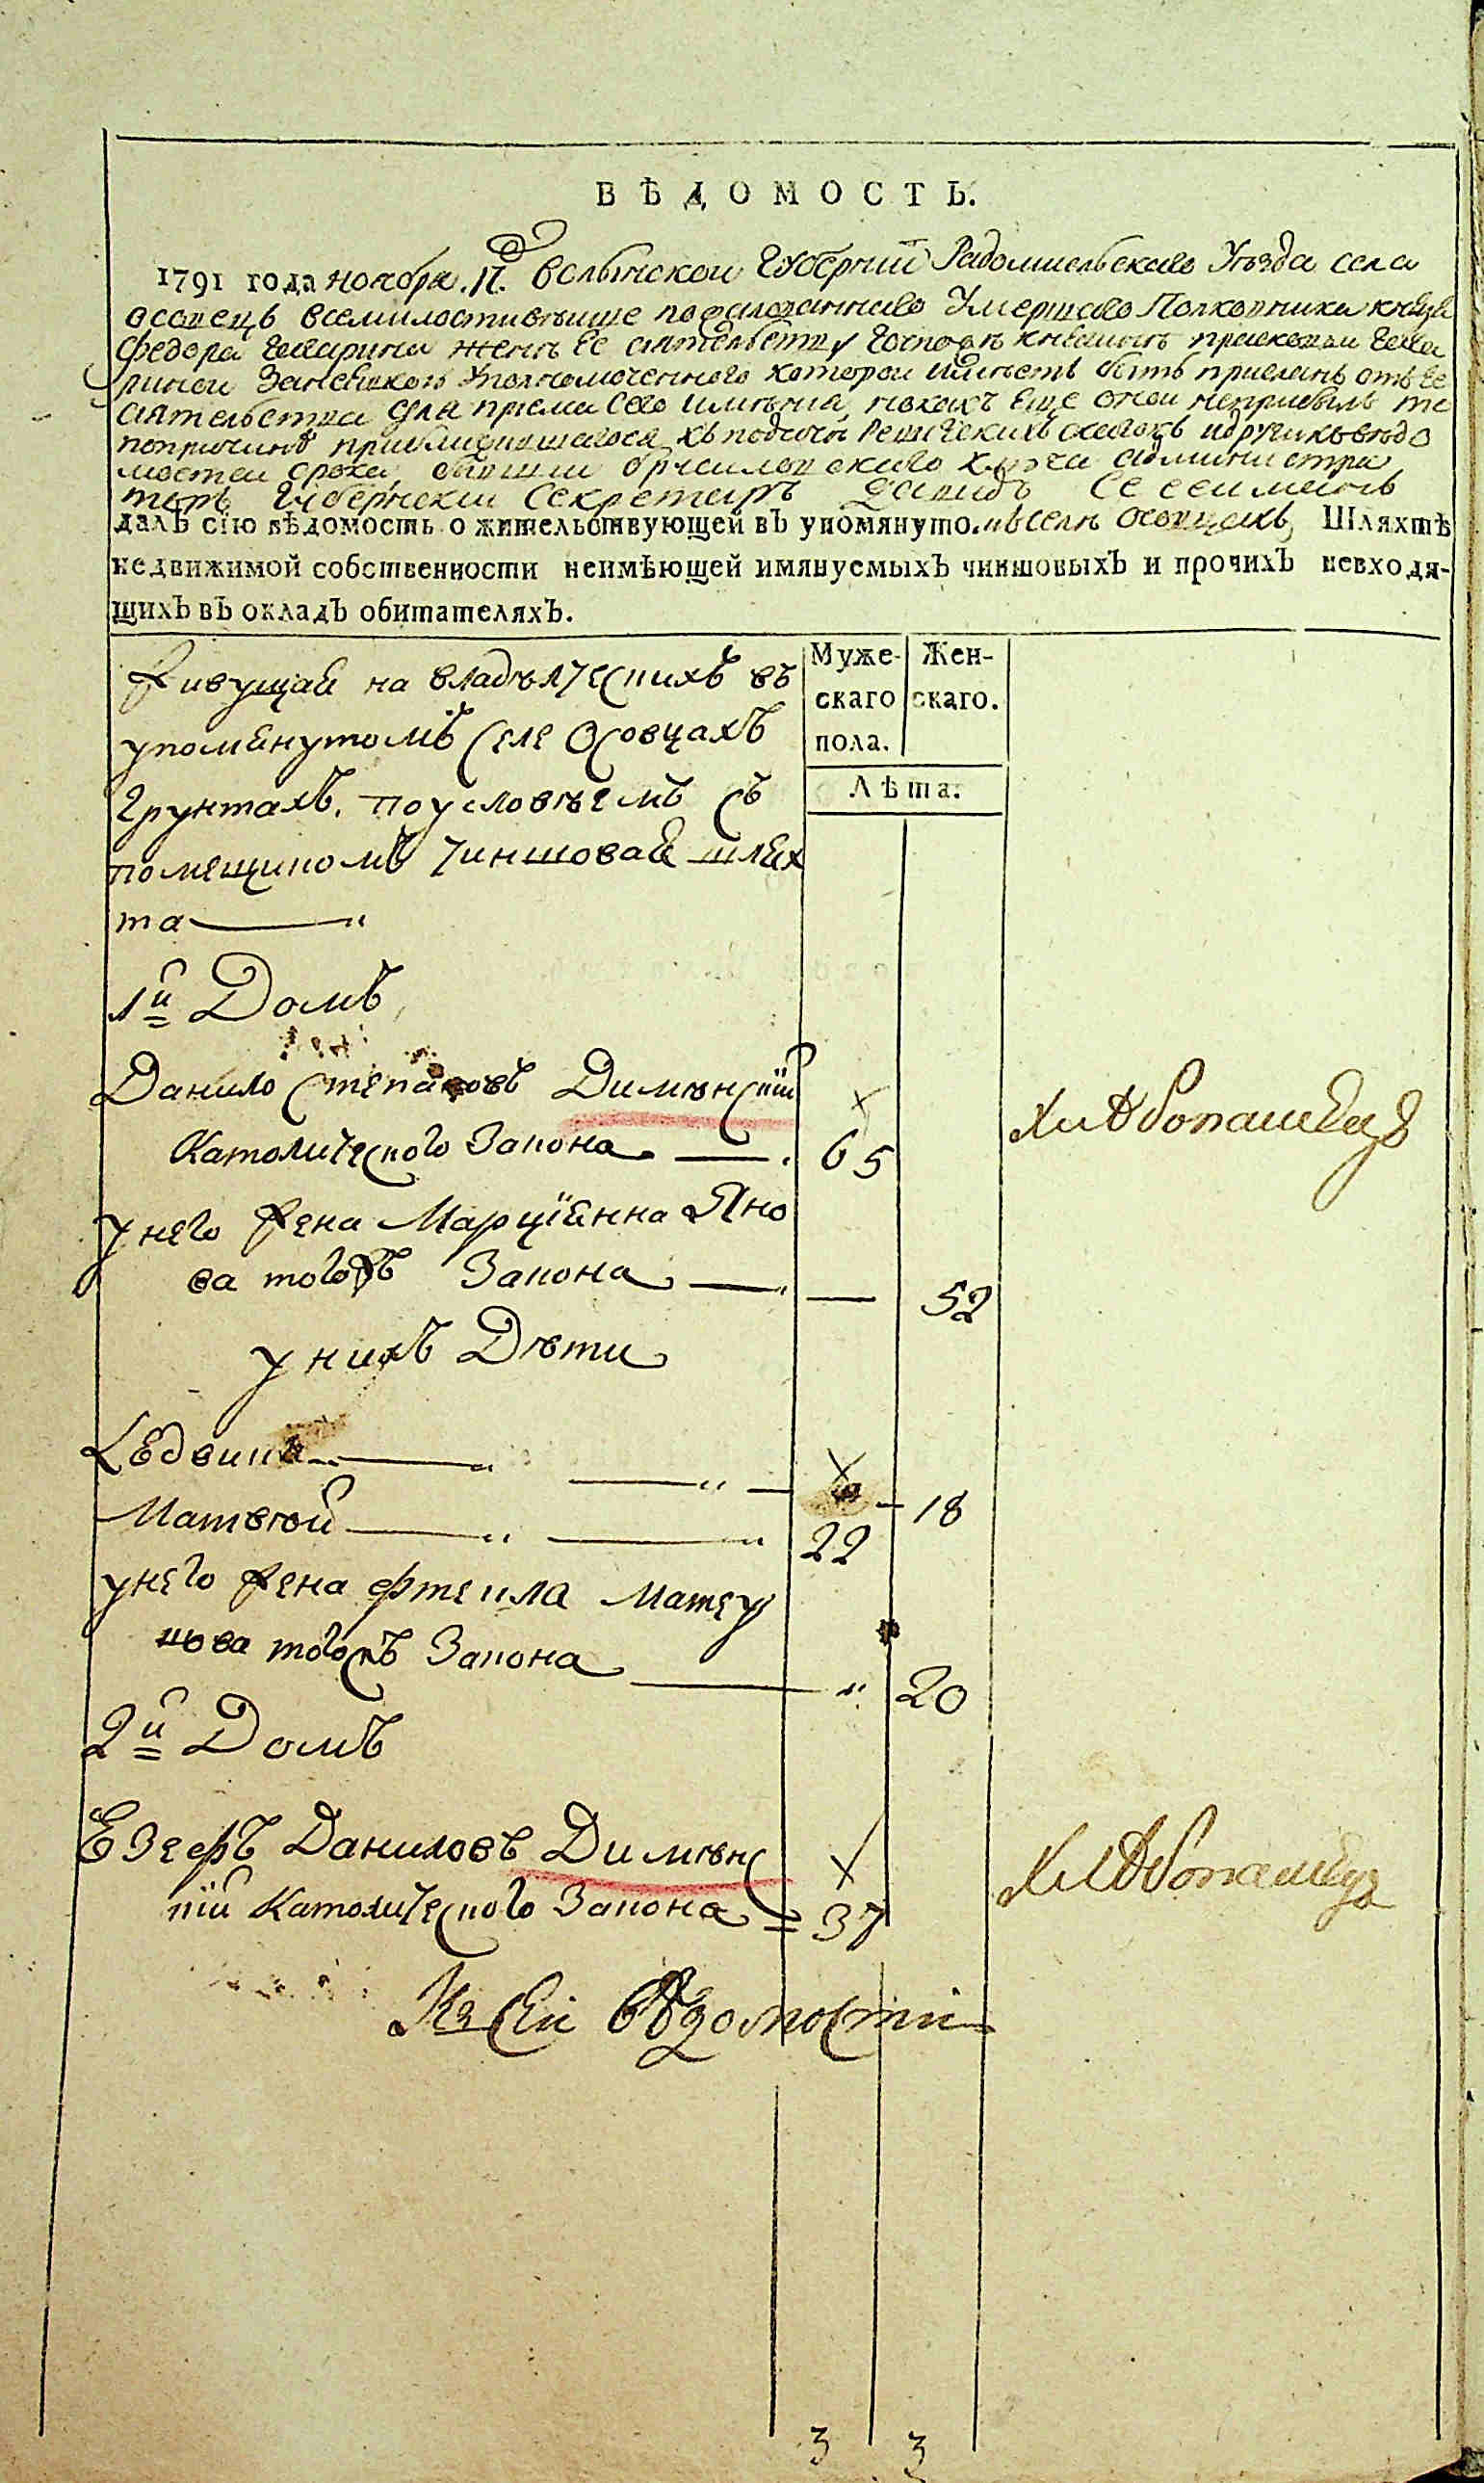 ВѢДОМОСТЬ.
1791 года ноября 17. Волынской Губернии Радомишльскаго Уѣзда села
осовецъ всемилостивѣише пожалованнаго Умершаго Полковника князя
Федора Гагарина женѣ Ее сиятельству Госпожѣ княгинѣ прасковьи Гага
риной Уполномоченного которой имѣетъ быть присланъ отъ Ее
сиятельства для приема сего имѣния, но какъ Еще оной неприбылъ то
попричинѣ приближившагося къ подачи Ревижскихъ сказокъ и другихъ вѣдо
мостей срока, бывший брусиловского ключа администра
торъ Губернский Секретарь Давидъ
далъ сїю вѣдомость о жительствующей въ упомянутомъ селѣ Осовцахъ, Шляхтѣ
недвижимой собственности неимѣющей имянуемыхъ чиншовыхъ и прочихъ невходя-
щихъ въ окладъ обитателяхъ.
Живущая на владѣлческихъ въ
упомянутомъ селе Осовцахъ
Грунтахъ, по условѣемъ съ
помещикомъ чиншовая шлях
та
Муже- Жен-
скаго скаго.
пола.
Лѣта.
1й Домъ
Данило Степановъ Димѣнскїй
Католического Закона 65
у него жена Марцїянна Яно
ва тогожъ Закона 52
у нихъ Дѣти
Ядвига 18
Матвѣй 22
у него жена Матеу
шова тогожъ Закона 20
2й Домъ
Езефъ Даниловъ Димѣнс
кїй Католического Закона 37
Къ сей Вѣдомости
3 3